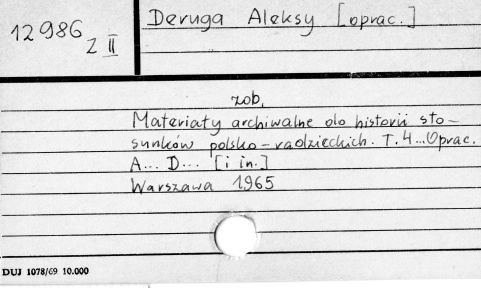 12986
Z II
Deruga Aleksy [oprac.]
zob.
Materiały archiwalne do historii sto-
sunków polsko-radzieckich. T. 4... Oprac.
A... D... [i in.]
Warszawa 1965
DUJ 1078/69 10.000